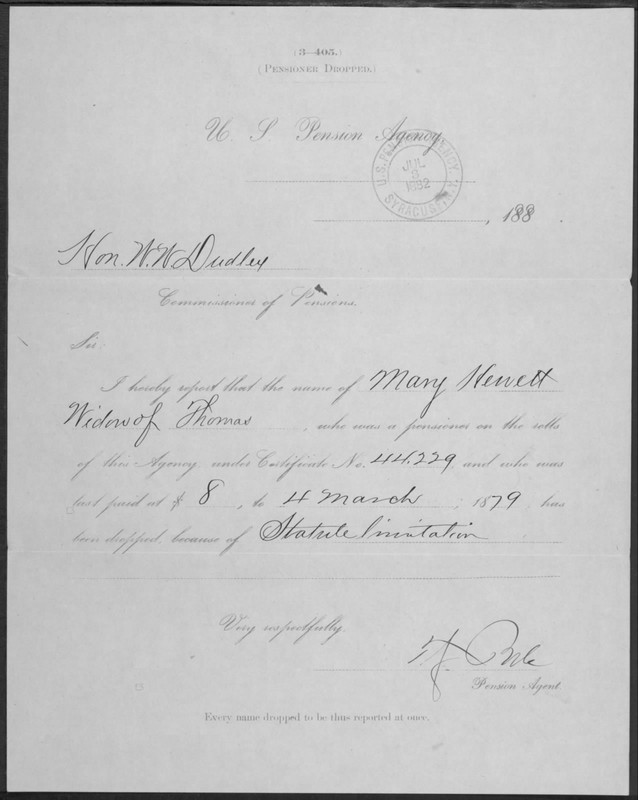 (3—405.)
(PENSIONER DROPPED.)
U. S. Pension Agency
U.S. PENSION AGENCY,
JUL
3
1882
SYRACUSE, N.Y.
, 188
Hon. W. W. Dudley
Commissioner of Pensions.
Sir:
I hereby report that the name of Mary Hewett
Widow of Thomas, who was a pensioner on the rolls
of this Agency, under Certificate No. 44,229, and who was
last paid at $ 8, to 4 March, 1879, has
been dropped, because of Statute limitation
Very respectfully,
Pension Agent.
Every name dropped to be thus reported at once.